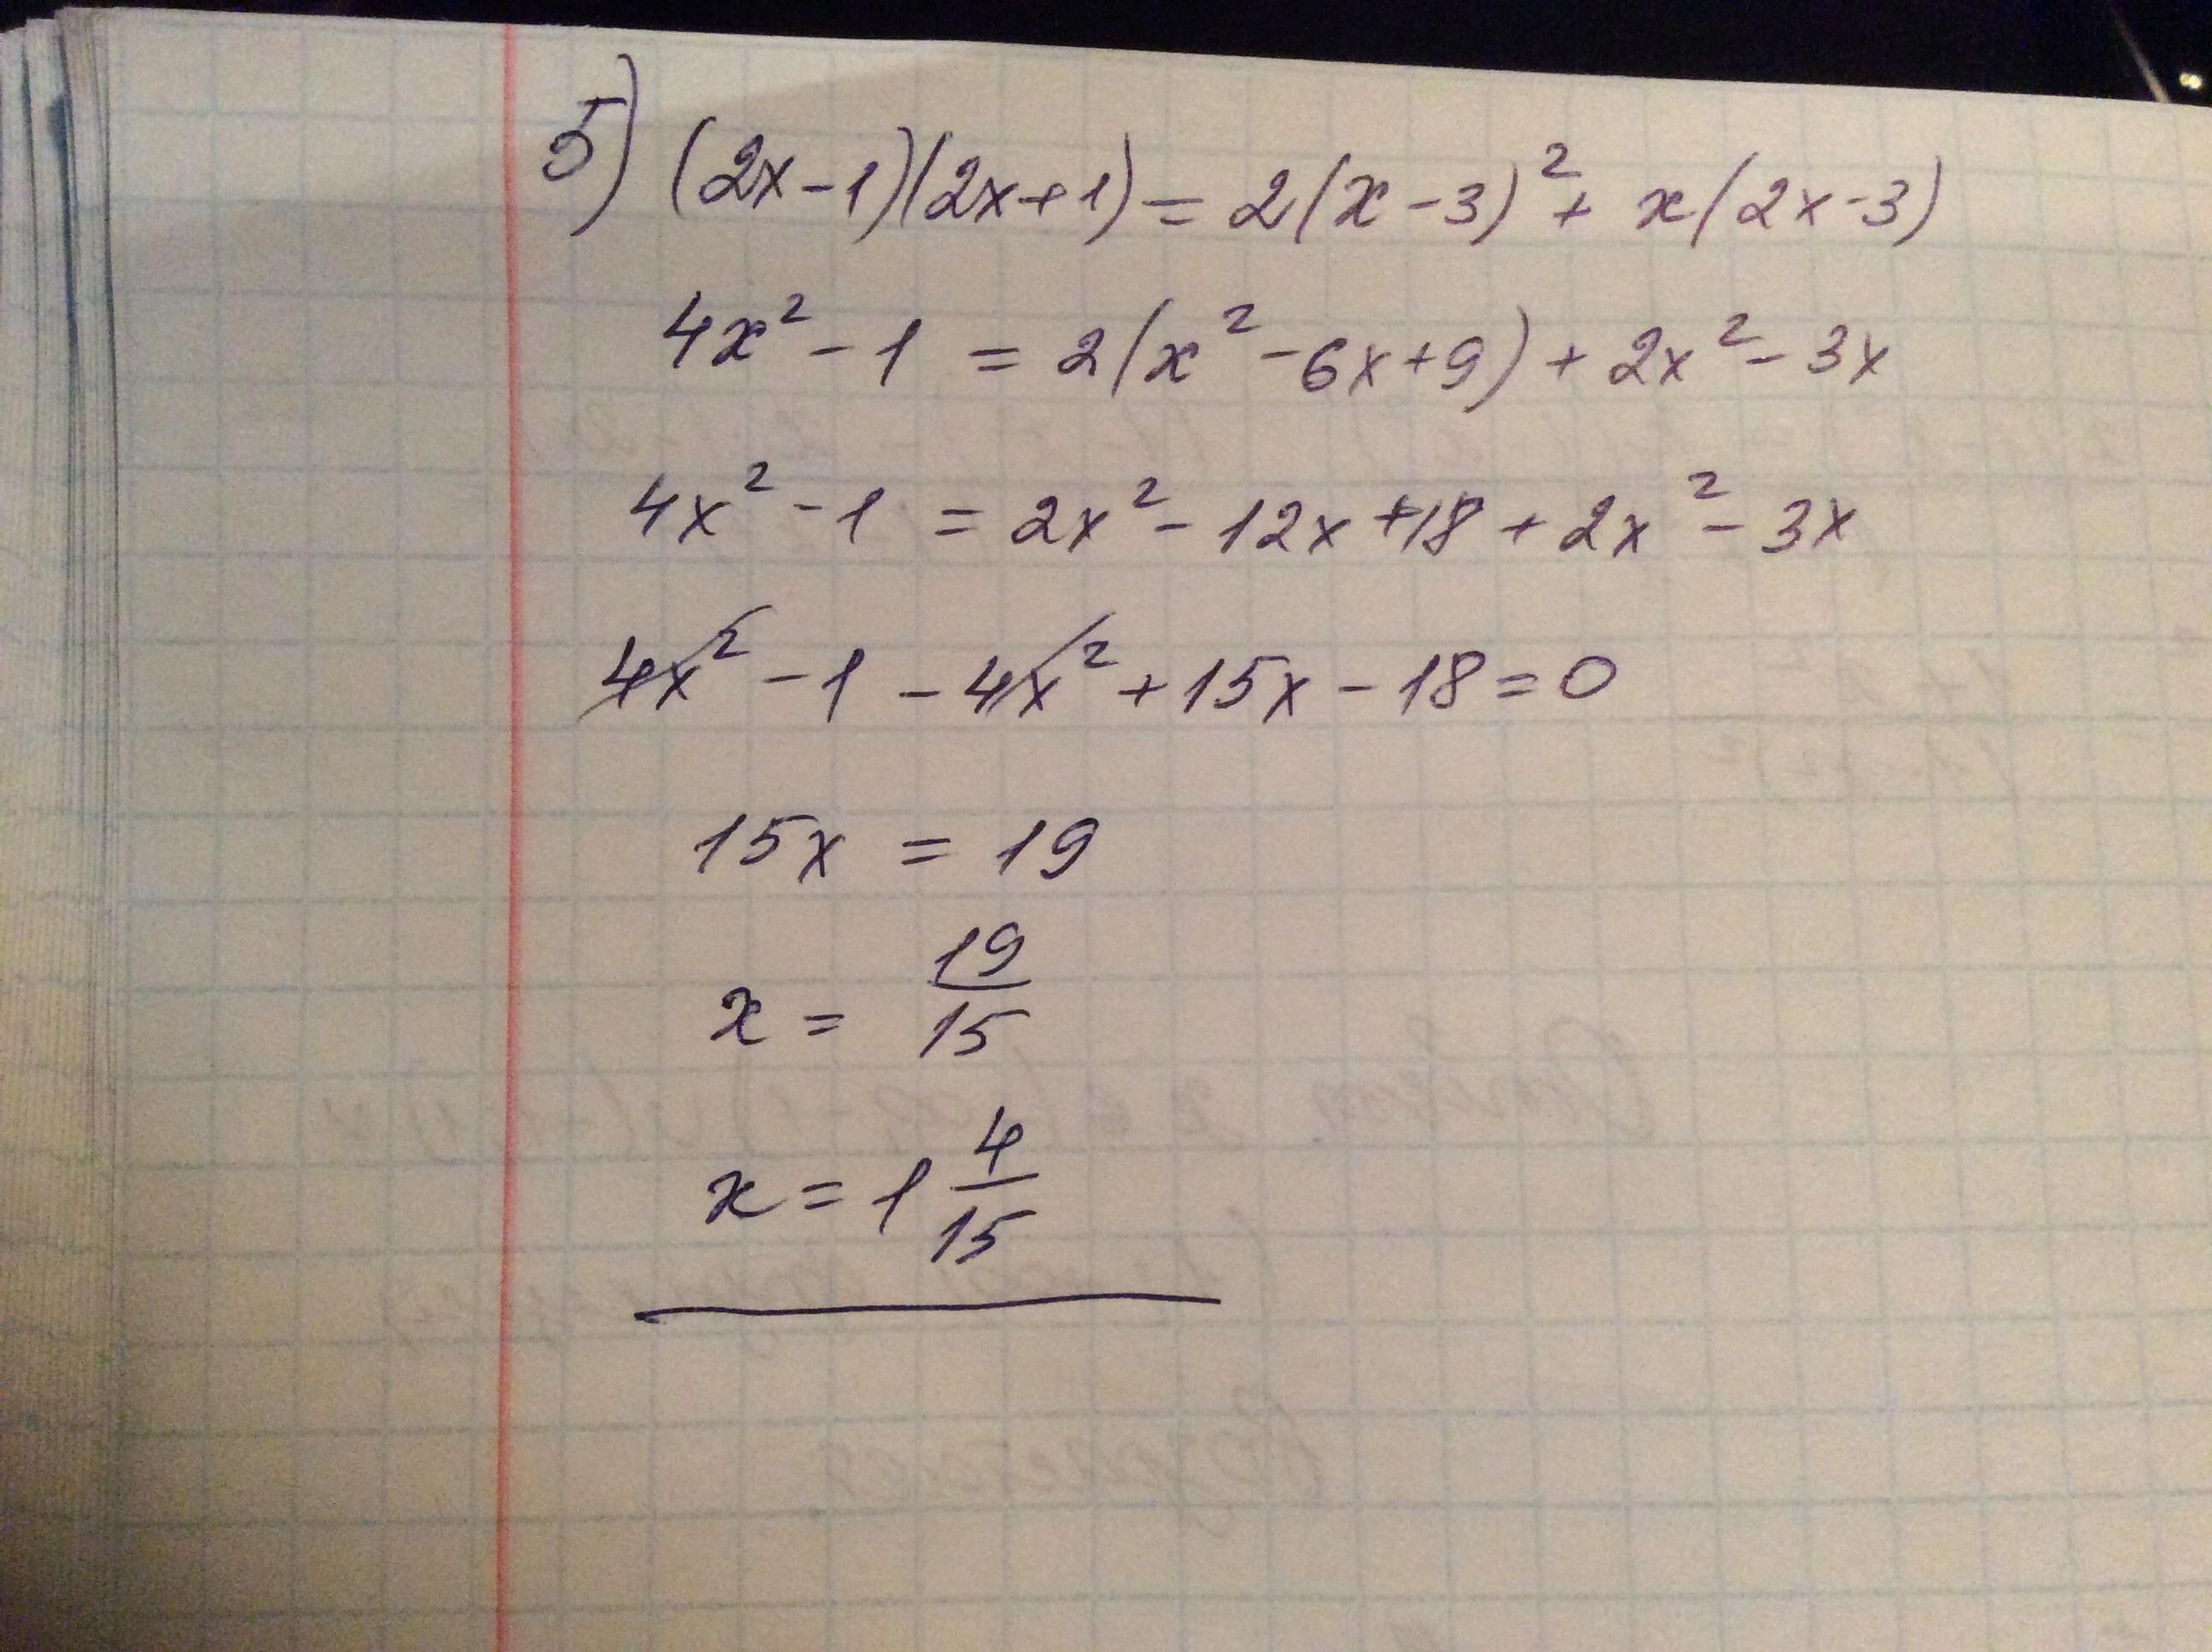 5) (2x-1)(2x+1) = 2(x-3)² + x(2x-3)
4x² - 1 = 2(x² - 6x + 9) + 2x² - 3x
4x² - 1 = 2x² - 12x + 18 + 2x² - 3x
4x² - 1 - 4x² + 15x - 18 = 0
15x = 19
x = 19/15
x = 1 4/15